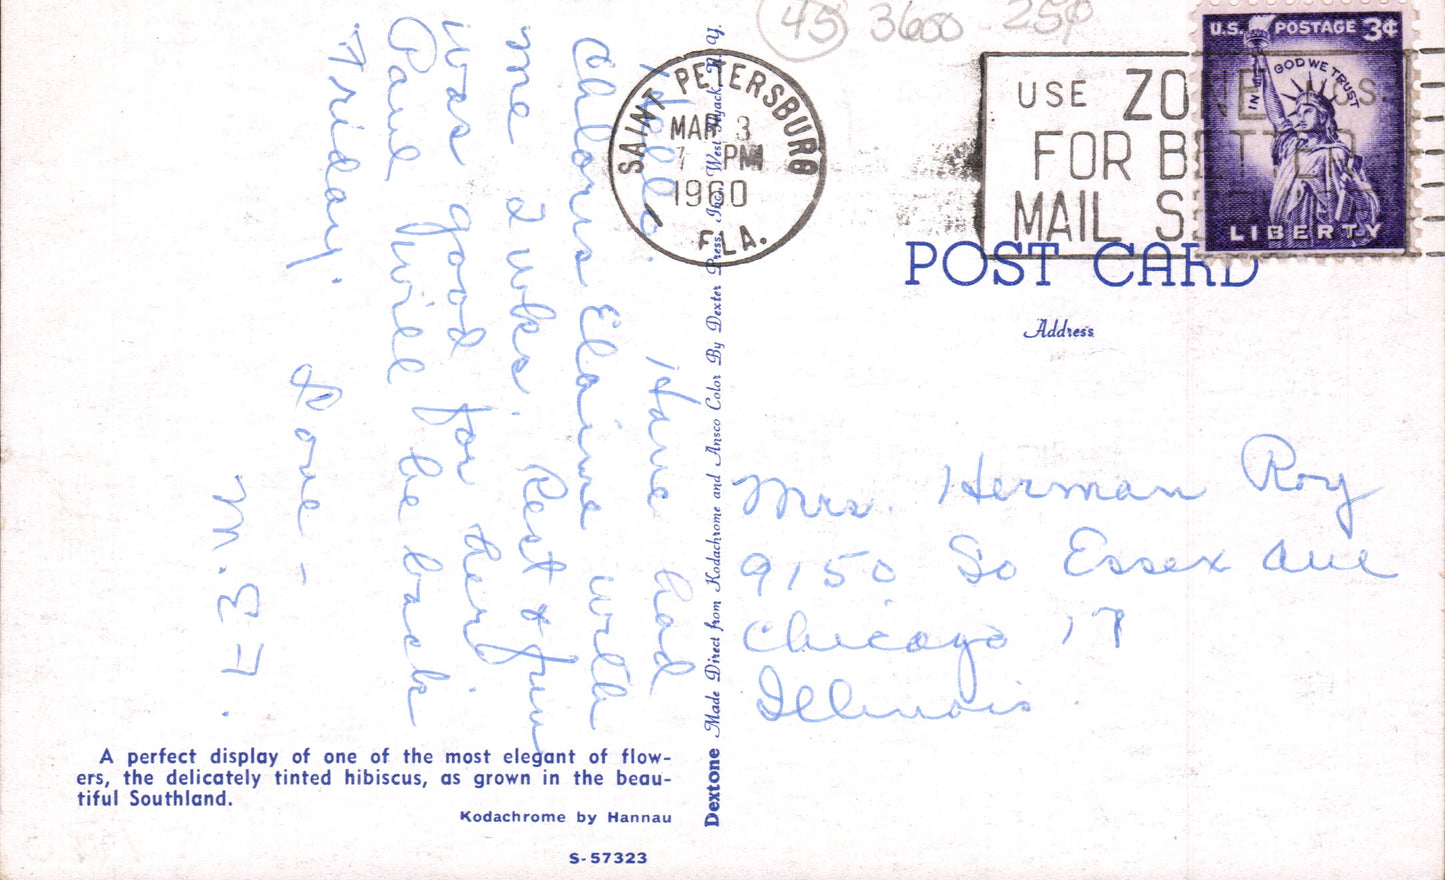 45 3600 25¢
SAINT PETERSBURG
MAR 3
7 PM
1960
FLA.
USE ZONE NOS.
FOR BETTER
MAIL SERVICE
U.S. POSTAGE 3¢
IN GOD WE TRUST
LIBERTY
POST CARD
Address
Hello. Have had
Chloris Elaine with
me 2 wks. Rest & fun
was good for her.
Paul will be back
Friday.
Love -
Mrs. Herman Roy
9150 So Essex Ave
Chicago 17
Illinois.
A perfect display of one of the most elegant of flow-
ers, the delicately tinted hibiscus, as grown in the beau-
tiful Southland.
Kodachrome by Hannau
S-57323
Dextone Made Direct from Kodachrome and Ansco Color By Dexter Press, Inc., West Nyack, N. Y.